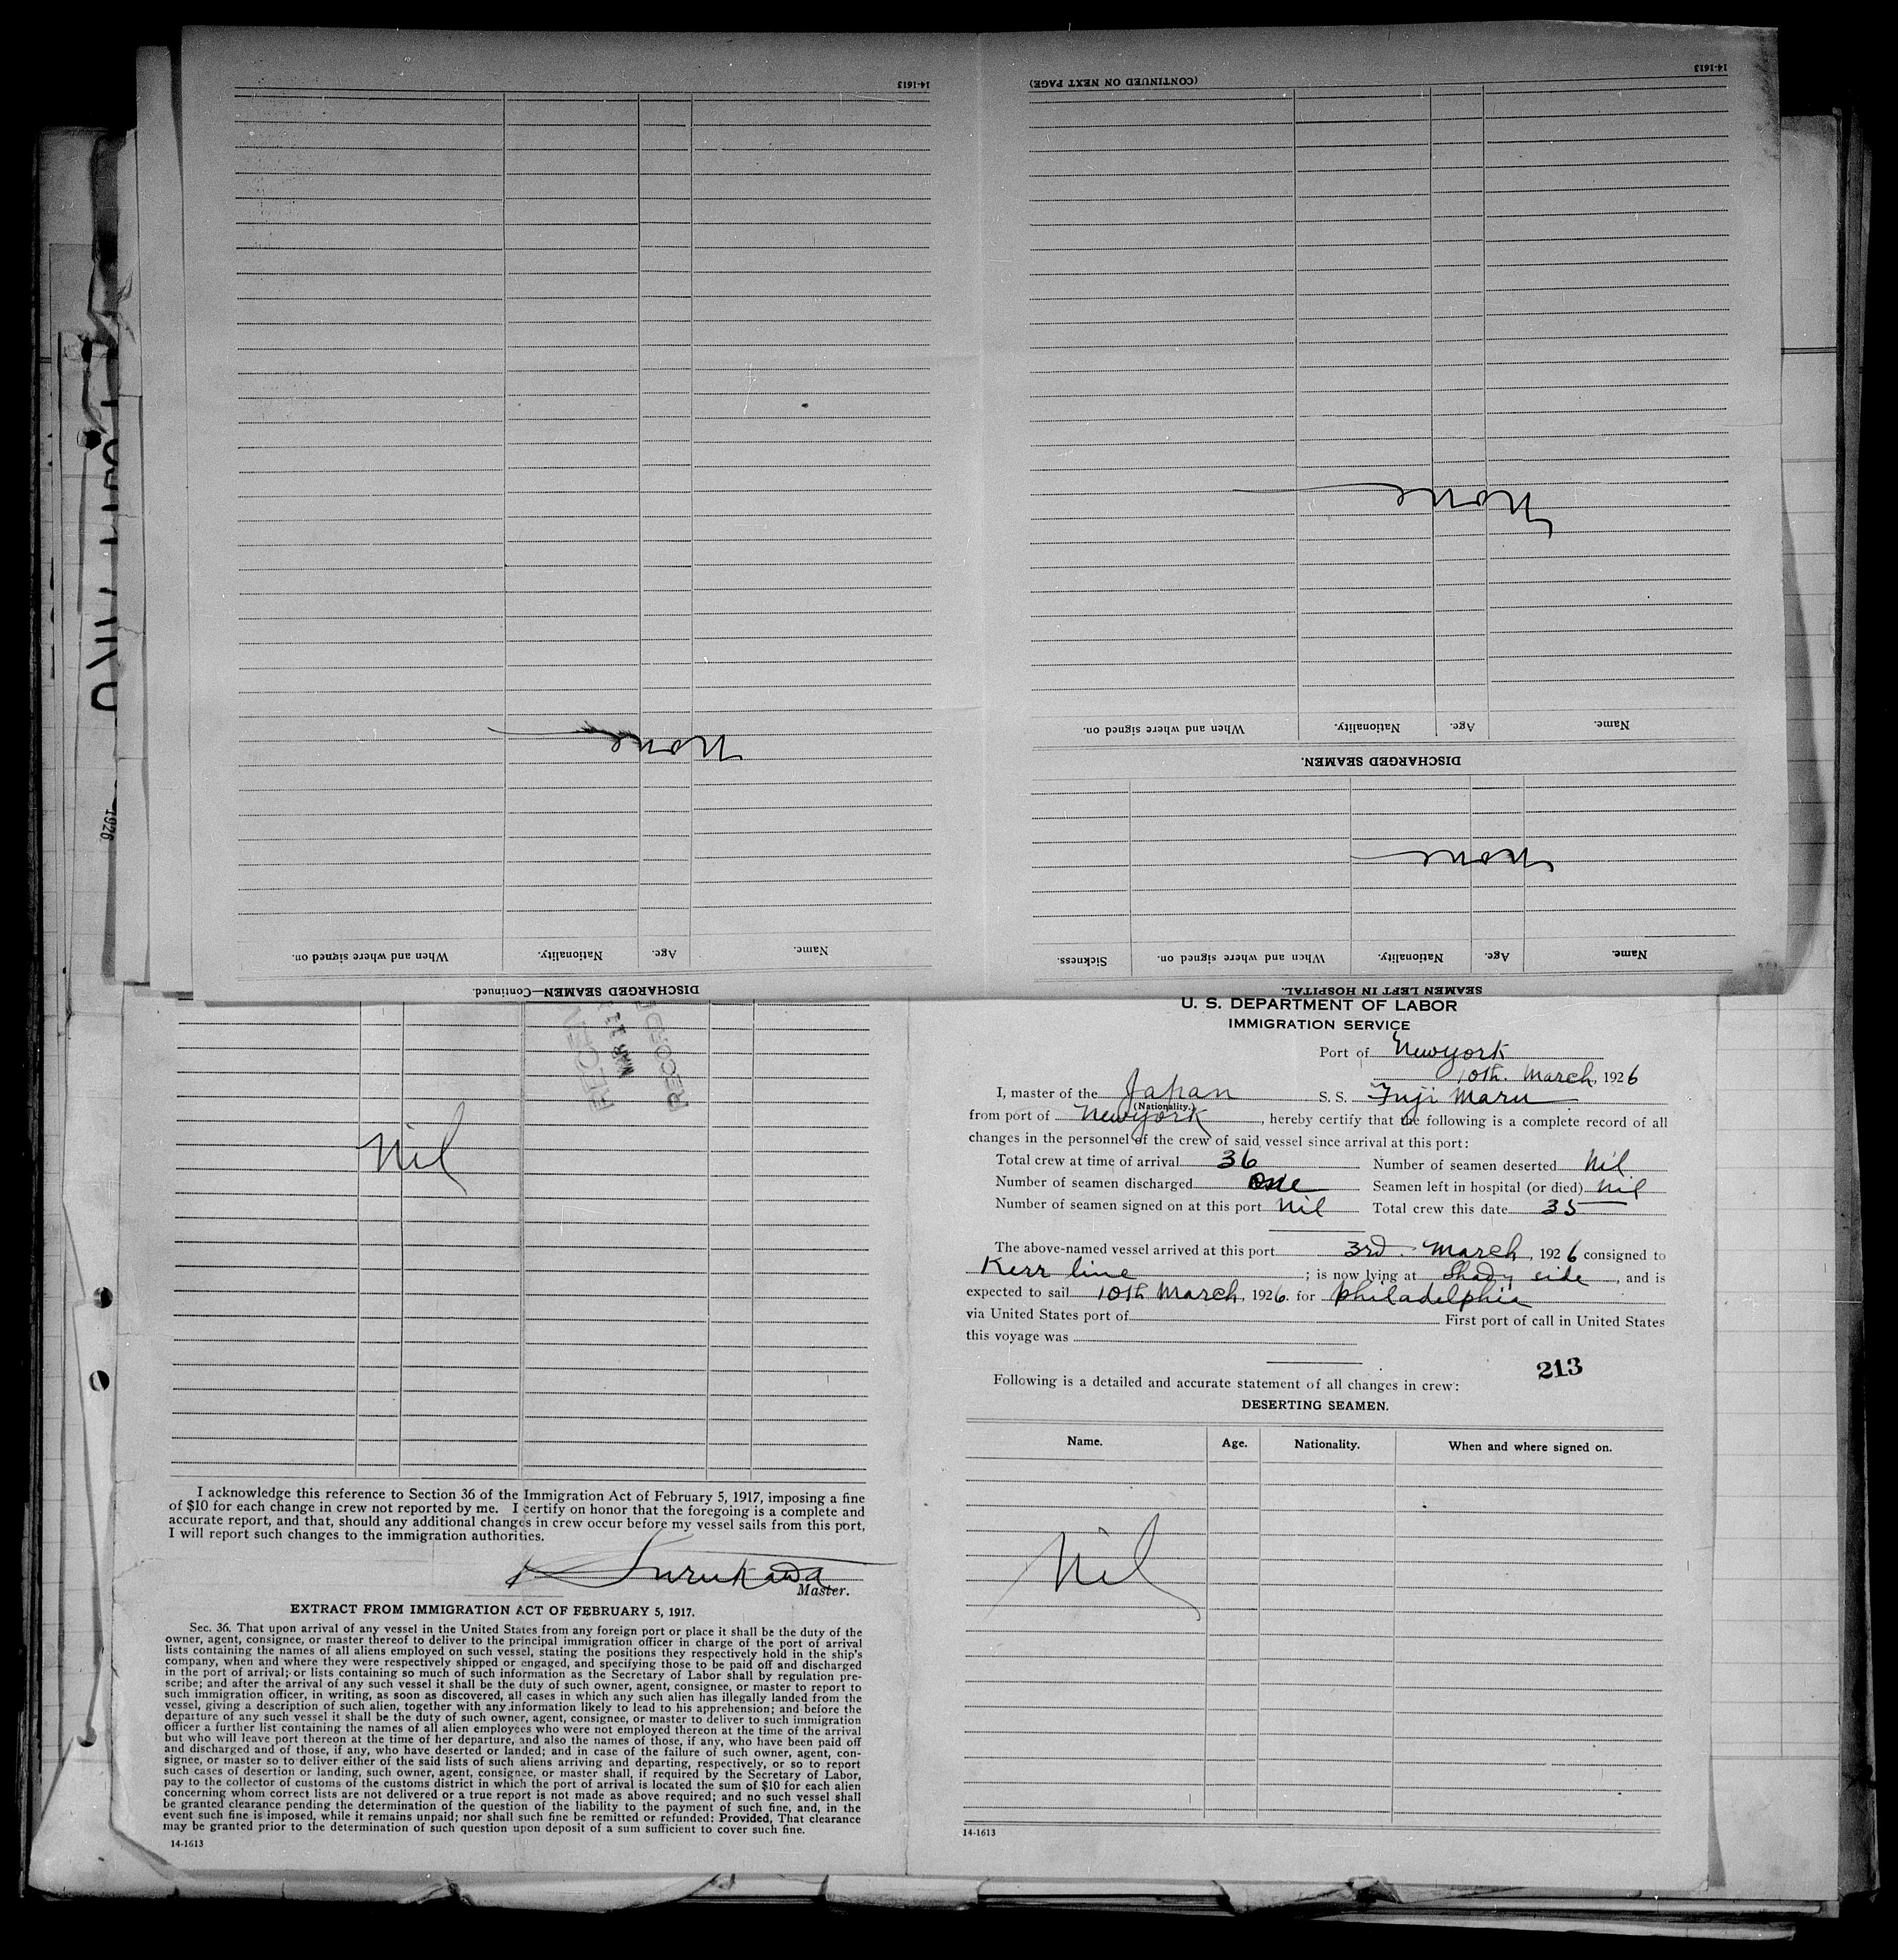 14-1613
(CONTINUED ON NEXT PAGE)
14-1613
None
None
None
Name. Age. Nationality. When and where signed on.
DISCHARGED SEAMEN.
Name. Age. Nationality. When and where signed on. Sickness.
SEAMEN LEFT IN HOSPITAL.
Name. Age. Nationality. When and where signed on.
DISCHARGED SEAMEN—Continued.
1926
RECORDED
MAR 11
Nil
I acknowledge this reference to Section 36 of the Immigration Act of February 5, 1917, imposing a fine
of $10 for each change in crew not reported by me. I certify on honor that the foregoing is a complete and
accurate report, and that, should any additional changes in crew occur before my vessel sails from this port,
I will report such changes to the immigration authorities.
Master.
EXTRACT FROM IMMIGRATION ACT OF FEBRUARY 5, 1917.
Sec. 36. That upon arrival of any vessel in the United States from any foreign port or place it shall be the duty of the
owner, agent, consignee, or master thereof to deliver to the principal immigration officer in charge of the port of arrival
lists containing the names of all aliens employed on such vessel, stating the positions they respectively hold in the ship's
company, when and where they were respectively shipped or engaged, and specifying those to be paid off and discharged
in the port of arrival; or lists containing so much of such information as the Secretary of Labor shall by regulation pre-
scribe; and after the arrival of any such vessel it shall be the duty of such owner, agent, consignee, or master to report to
such immigration officer, in writing, as soon as discovered, all cases in which any such alien has illegally landed from the
vessel, giving a description of such alien, together with any information likely to lead to his apprehension; and before the
departure of any such vessel it shall be the duty of such owner, agent, consignee, or master to deliver to such immigration
officer a further list containing the names of all alien employees who were not employed thereon at the time of the arrival
but who will leave port thereon at the time of her departure, and also the names of those, if any, who have been paid off
and discharged and of those, if any, who have deserted or landed; and in case of the failure of such owner, agent, con-
signee, or master so to deliver either of the said lists of such aliens arriving and departing, respectively, or so to report
such cases of desertion or landing, such owner, agent, consignee, or master shall, if required by the Secretary of Labor,
pay to the collector of customs of the customs district in which the port of arrival is located the sum of $10 for each alien
concerning whom correct lists are not delivered or a true report is not made as above required; and no such vessel shall
be granted clearance pending the determination of the question of the liability to the payment of such fine, and, in the
event such fine is imposed, while it remains unpaid; nor shall such fine be remitted or refunded: Provided, That clearance
may be granted prior to the determination of such question upon deposit of a sum sufficient to cover such fine.
14-1613
U. S. DEPARTMENT OF LABOR
IMMIGRATION SERVICE
Port of Newyork
10th. March, 1926
I, master of the Japan S. S. Fuji Maru
(Nationality.)
from port of Newyork, hereby certify that the following is a complete record of all
changes in the personnel of the crew of said vessel since arrival at this port:
Total crew at time of arrival 36 Number of seamen deserted Nil
Number of seamen discharged One Seamen left in hospital (or died) Nil
Number of seamen signed on at this port Nil Total crew this date 35
The above-named vessel arrived at this port 3rd. March, 1926 consigned to
Kerr line; is now lying at Shady side, and is
expected to sail 10th March, 1926. for Philadelphia
via United States port of First port of call in United States
this voyage was
213
Following is a detailed and accurate statement of all changes in crew:
DESERTING SEAMEN.
Name. Age. Nationality. When and where signed on.
Nil
14-1613